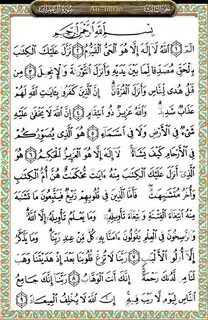 Ali 'Imran
بِسْمِ ٱللَّهِ ٱلرَّحْمَٰنِ ٱلرَّحِيمِ
الٓمٓ ١ ٱللَّهُ لَآ إِلَٰهَ إِلَّا هُوَ ٱلْحَىُّ ٱلْقَيُّومُ ٢ نَزَّلَ عَلَيْكَ ٱلْكِتَٰبَ
بِٱلْحَقِّ مُصَدِّقًا لِّمَا بَيْنَ يَدَيْهِ وَأَنزَلَ ٱلتَّوْرَىٰةَ وَٱلْإِنجِيلَ ٣ مِن
قَبْلُ هُدًى لِّلنَّاسِ وَأَنزَلَ ٱلْفُرْقَانَ إِنَّ ٱلَّذِينَ كَفَرُوا۟ بِـَٔايَٰتِ ٱللَّهِ لَهُمْ
عَذَابٌ شَدِيدٌ وَٱللَّهُ عَزِيزٌ ذُو ٱنتِقَامٍ ٤ إِنَّ ٱللَّهَ لَا يَخْفَىٰ عَلَيْهِ
شَىْءٌ فِى ٱلْأَرْضِ وَلَا فِى ٱلسَّمَآءِ ٥ هُوَ ٱلَّذِى يُصَوِّرُكُمْ
فِى ٱلْأَرْحَامِ كَيْفَ يَشَآءُ لَآ إِلَٰهَ إِلَّا هُوَ ٱلْعَزِيزُ ٱلْحَكِيمُ ٦ هُوَ ٱلَّذِىٓ
أَنزَلَ عَلَيْكَ ٱلْكِتَٰبَ مِنْهُ ءَايَٰتٌ مُّحْكَمَٰتٌ هُنَّ أُمُّ ٱلْكِتَٰبِ
وَأُخَرُ مُتَشَٰبِهَٰتٌ فَأَمَّا ٱلَّذِينَ فِى قُلُوبِهِمْ زَيْغٌ فَيَتَّبِعُونَ مَا تَشَٰبَهَ
مِنْهُ ٱبْتِغَآءَ ٱلْفِتْنَةِ وَٱبْتِغَآءَ تَأْوِيلِهِۦ وَمَا يَعْلَمُ تَأْوِيلَهُۥٓ إِلَّا ٱللَّهُ
وَٱلرَّٰسِخُونَ فِى ٱلْعِلْمِ يَقُولُونَ ءَامَنَّا بِهِۦ كُلٌّ مِّنْ عِندِ رَبِّنَا وَمَا يَذَّكَّرُ
إِلَّآ أُو۟لُوا۟ ٱلْأَلْبَٰبِ ٧ رَبَّنَا لَا تُزِغْ قُلُوبَنَا بَعْدَ إِذْ هَدَيْتَنَا وَهَبْ
لَنَا مِن لَّدُنكَ رَحْمَةً إِنَّكَ أَنتَ ٱلْوَهَّابُ ٨ رَبَّنَآ إِنَّكَ جَامِعُ
ٱلنَّاسِ لِيَوْمٍ لَّا رَيْبَ فِيهِ إِنَّ ٱللَّهَ لَا يُخْلِفُ ٱلْمِيعَادَ ٩